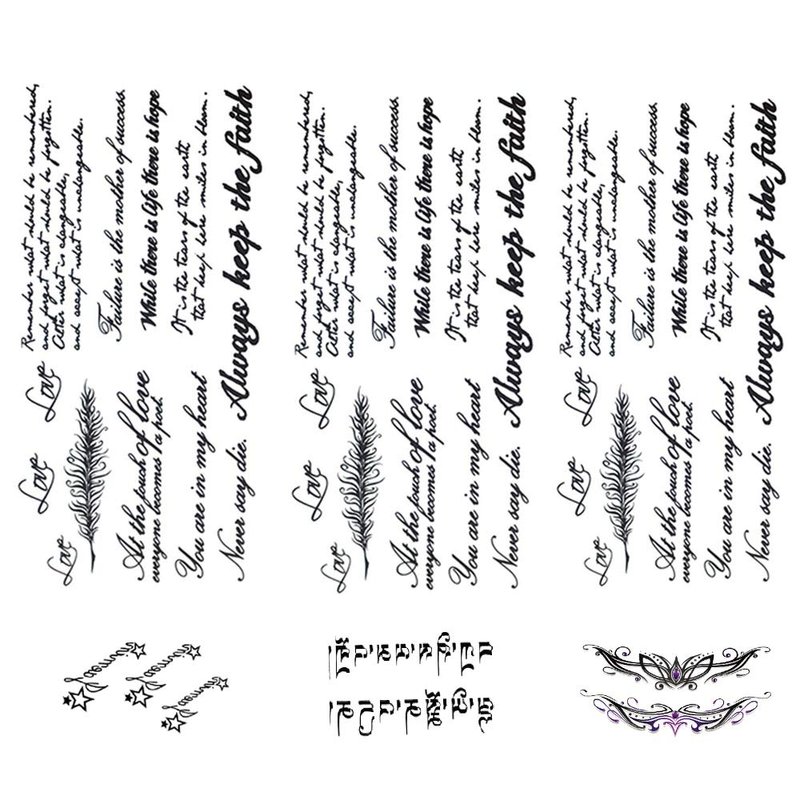 Remember what should be remembered,
and forget what should be forgotten.
Alter what is changeable,
and accept what is unchangeable.
Failure is the mother of success.
While there is life there is hope
It is the tears of the earth
that keep here smiles in bloom.
Always keep the faith
Love
Love
Love
At the touch of love
everyone becomes a poet.
You are in my heart
Never say die.
Remember what should be remembered,
and forget what should be forgotten.
Alter what is changeable,
and accept what is unchangeable.
Failure is the mother of success.
While there is life there is hope
It is the tears of the earth
that keep here smiles in bloom.
Always keep the faith
Love
Love
Love
At the touch of love
everyone becomes a poet.
You are in my heart
Never say die.
Remember what should be remembered,
and forget what should be forgotten.
Alter what is changeable,
and accept what is unchangeable.
Failure is the mother of success.
While there is life there is hope
It is the tears of the earth
that keep here smiles in bloom.
Always keep the faith
Love
Love
Love
At the touch of love
everyone becomes a poet.
You are in my heart
Never say die.